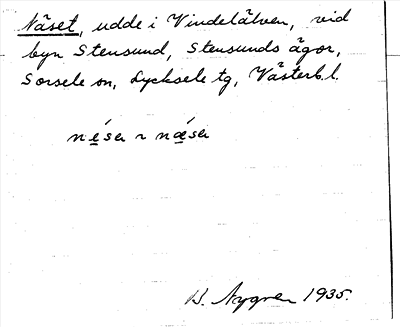 Näset, udde i Vindelälven, vid
byn Stensund, Stensunds ägor,
Sorsele sn, Lycksele tg, Västerb. l.
né̱sɛr ~ nǽ̱sɛr
H. Nygren 1935.